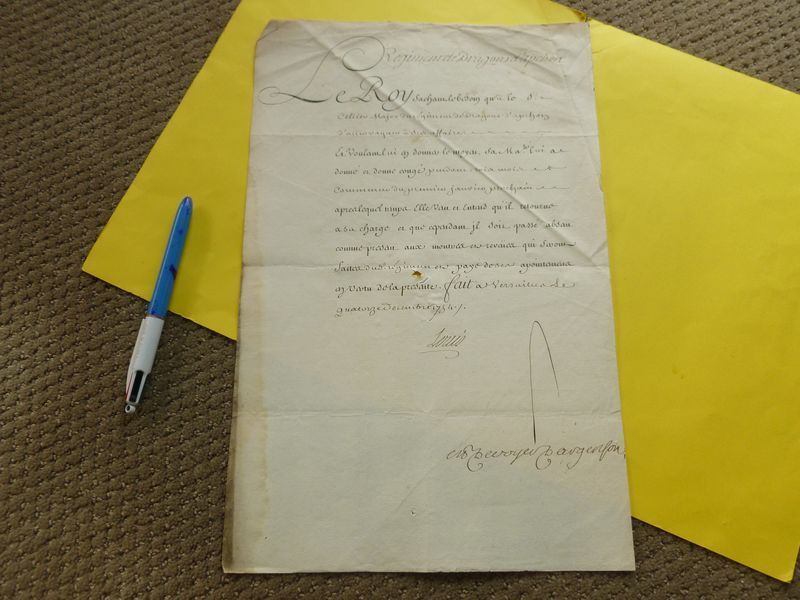 Regiment de Dragons d'apchon
Le Roy Sachant le besoin qu'a le S.
Major du Regiment de Dragons d'apchon
d'aller vaquer a ses affaires
Et Voulant lui en donner le moyen, Sa Ma.té lui a
donné et donne congé pendant mois a
Commencer du premier Janvier prochain
apres lequel temps Elle Veut et Entend qu'il retourne
a sa charge et que cependant il soit passé absent
comme present aux montres et reveües qui Seront
faites dud. Regiment et payé de ses apointemens
en vertu de la presente. fait a Versailles Le
quatorze Decembre 1754./.
Louis
De voyer D'argenson